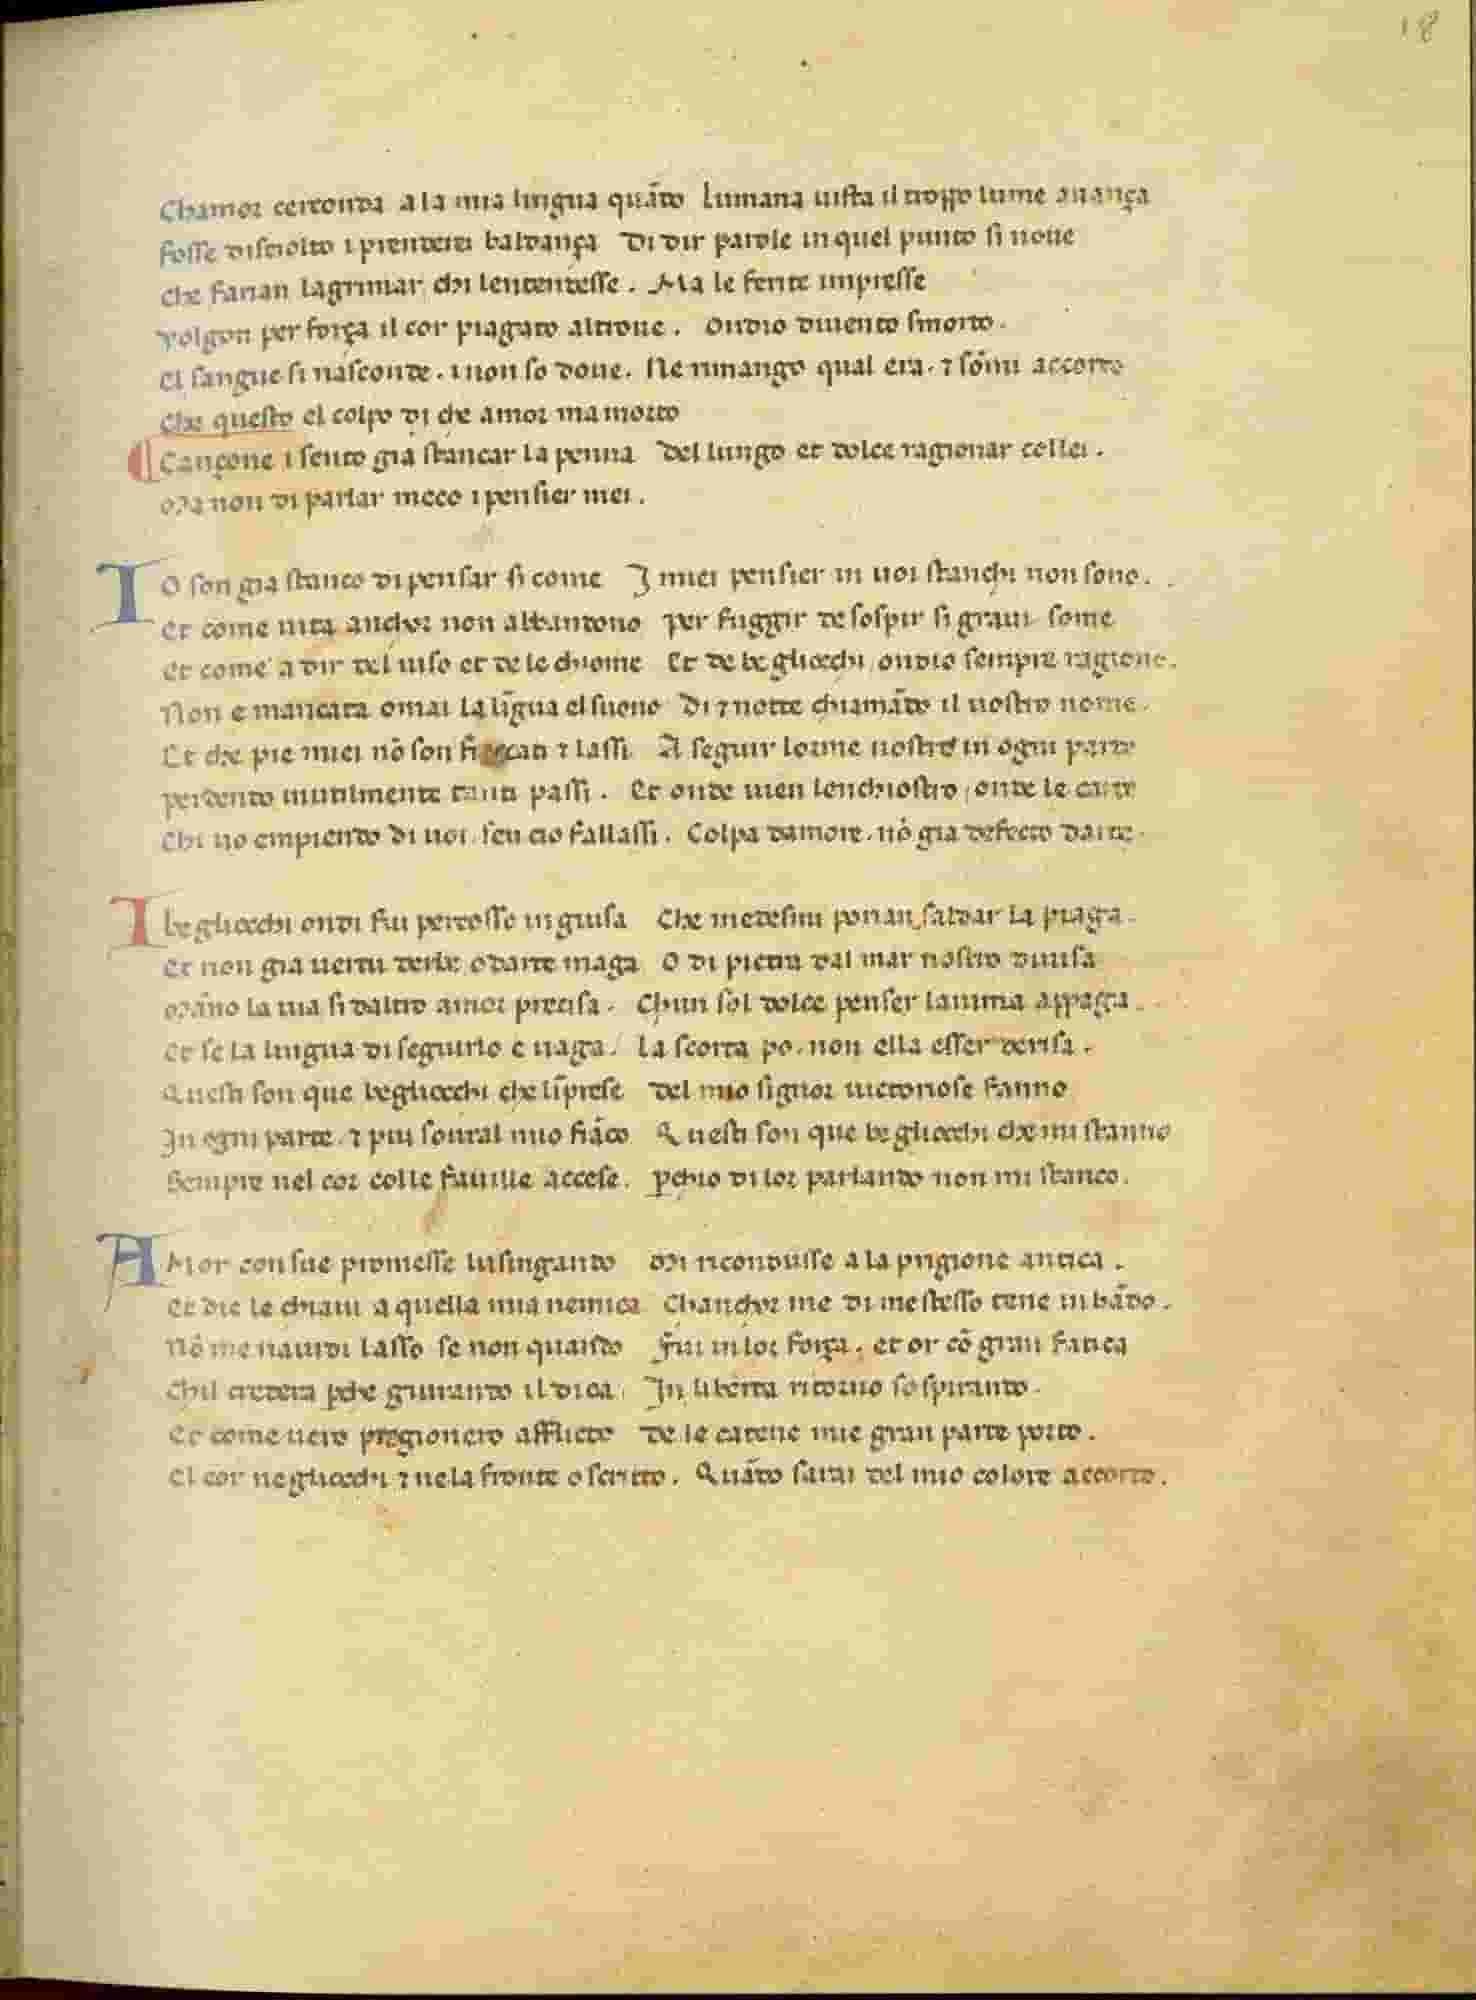 18
Chamor certonda a la mia lingua quãdo Lumana uista il troppo lume auança
Fosse disciolto i prenderei baldança Di dir parole in quel punto si noue
Che farian lagrimar chi lentendesse. Ma le ferite impresse
Volgon per força il cor piagato altroue. Ondio diuento smorto.
El sangue si nasconde. i non so doue. Ne rimango qual era. ⁊ sõmi accorto
Che questo el colpo di che amor ma morto
Cançone i sento gia stancar la penna Del lungo et dolce ragionar collei.
Ma non di parlar meco i pensier mei.
IO son gia stanco di pensar si come I miei pensier in uoi stanchi non sono.
Et come uita anchor non abbandono Per fuggir de sospir si graui some
Et come a dir del uiso et de le chiome Et de be gliocchi ondio sempre ragiono.
Non e mancata omai la lĩgua el suono Di ⁊ notte chiamãdo il uostro nome.
Et che pie miei nõ son fiaccati ⁊ lassi A seguir lorme uostre in ogni parte
Perdendo inutilmente tanti passi. Et onde uien lenchiostro, onde le carte
Chi uo empiendo di uoi. seu cio fallassi. Colpa damore. nõ gia defecto darte.
I be gliocchi ondi fui percosso in guisa Che medesimi porian saldar la piaga.
Et non gia uertu derbe o darte maga O di pietra dal mar nostro diuisa
Mãno la uia si daltro amor precisa. Chun sol dolce penser lanima appaga.
Et se la lingua di seguirlo e uaga. La scorta po. non ella esser derisa.
Questi son que begliocchi che lĩprese Del mio signor uictoriose fanno
In ogni parte. ⁊ piu soural mio fiãco Questi son que be gliocchi che mi stanno
Sempre nel cor colle fauille accese. Pchio di lor parlando non mi stanco.
AMor con sue promesse lusingando Mi ricondusse a la prigione antica.
Et die le chiaui a quella mia nemica Chanchor me di me stesso tene in bãdo.
Nõ me nauidi lasso se non quando Fui in lor força. et or cõ gran fatica
Chil credera pche giurando il dica. In liberta ritorno sospirando.
Et come uero pregionero afflicto De le catene mie gran parte porto.
El cor negliocchi ⁊ ne la fronte o scritto. Quãdo sarai del mio colore accorto.